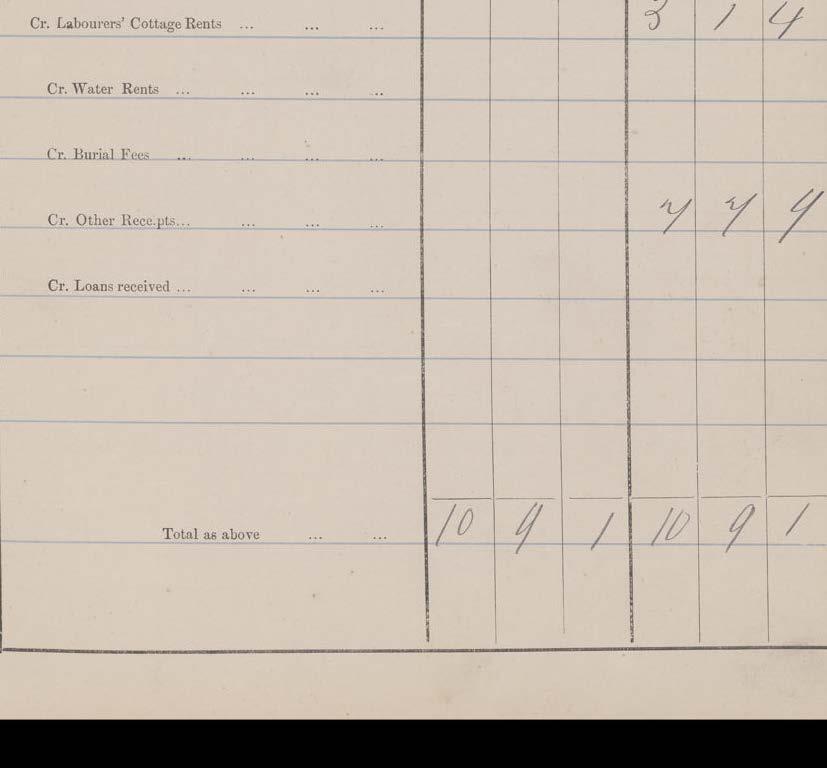 Cr. Labourers' Cottage Rents ... ... ... 3 1 4
Cr. Water Rents ... ... ... ..
Cr. Burial Fees ... ... ... ...
Cr. Other Rece.pts... ... ... ... 7 7 9
Cr. Loans received ... ... ... ...
Total as above ... ... 10 9 1 10 9 1